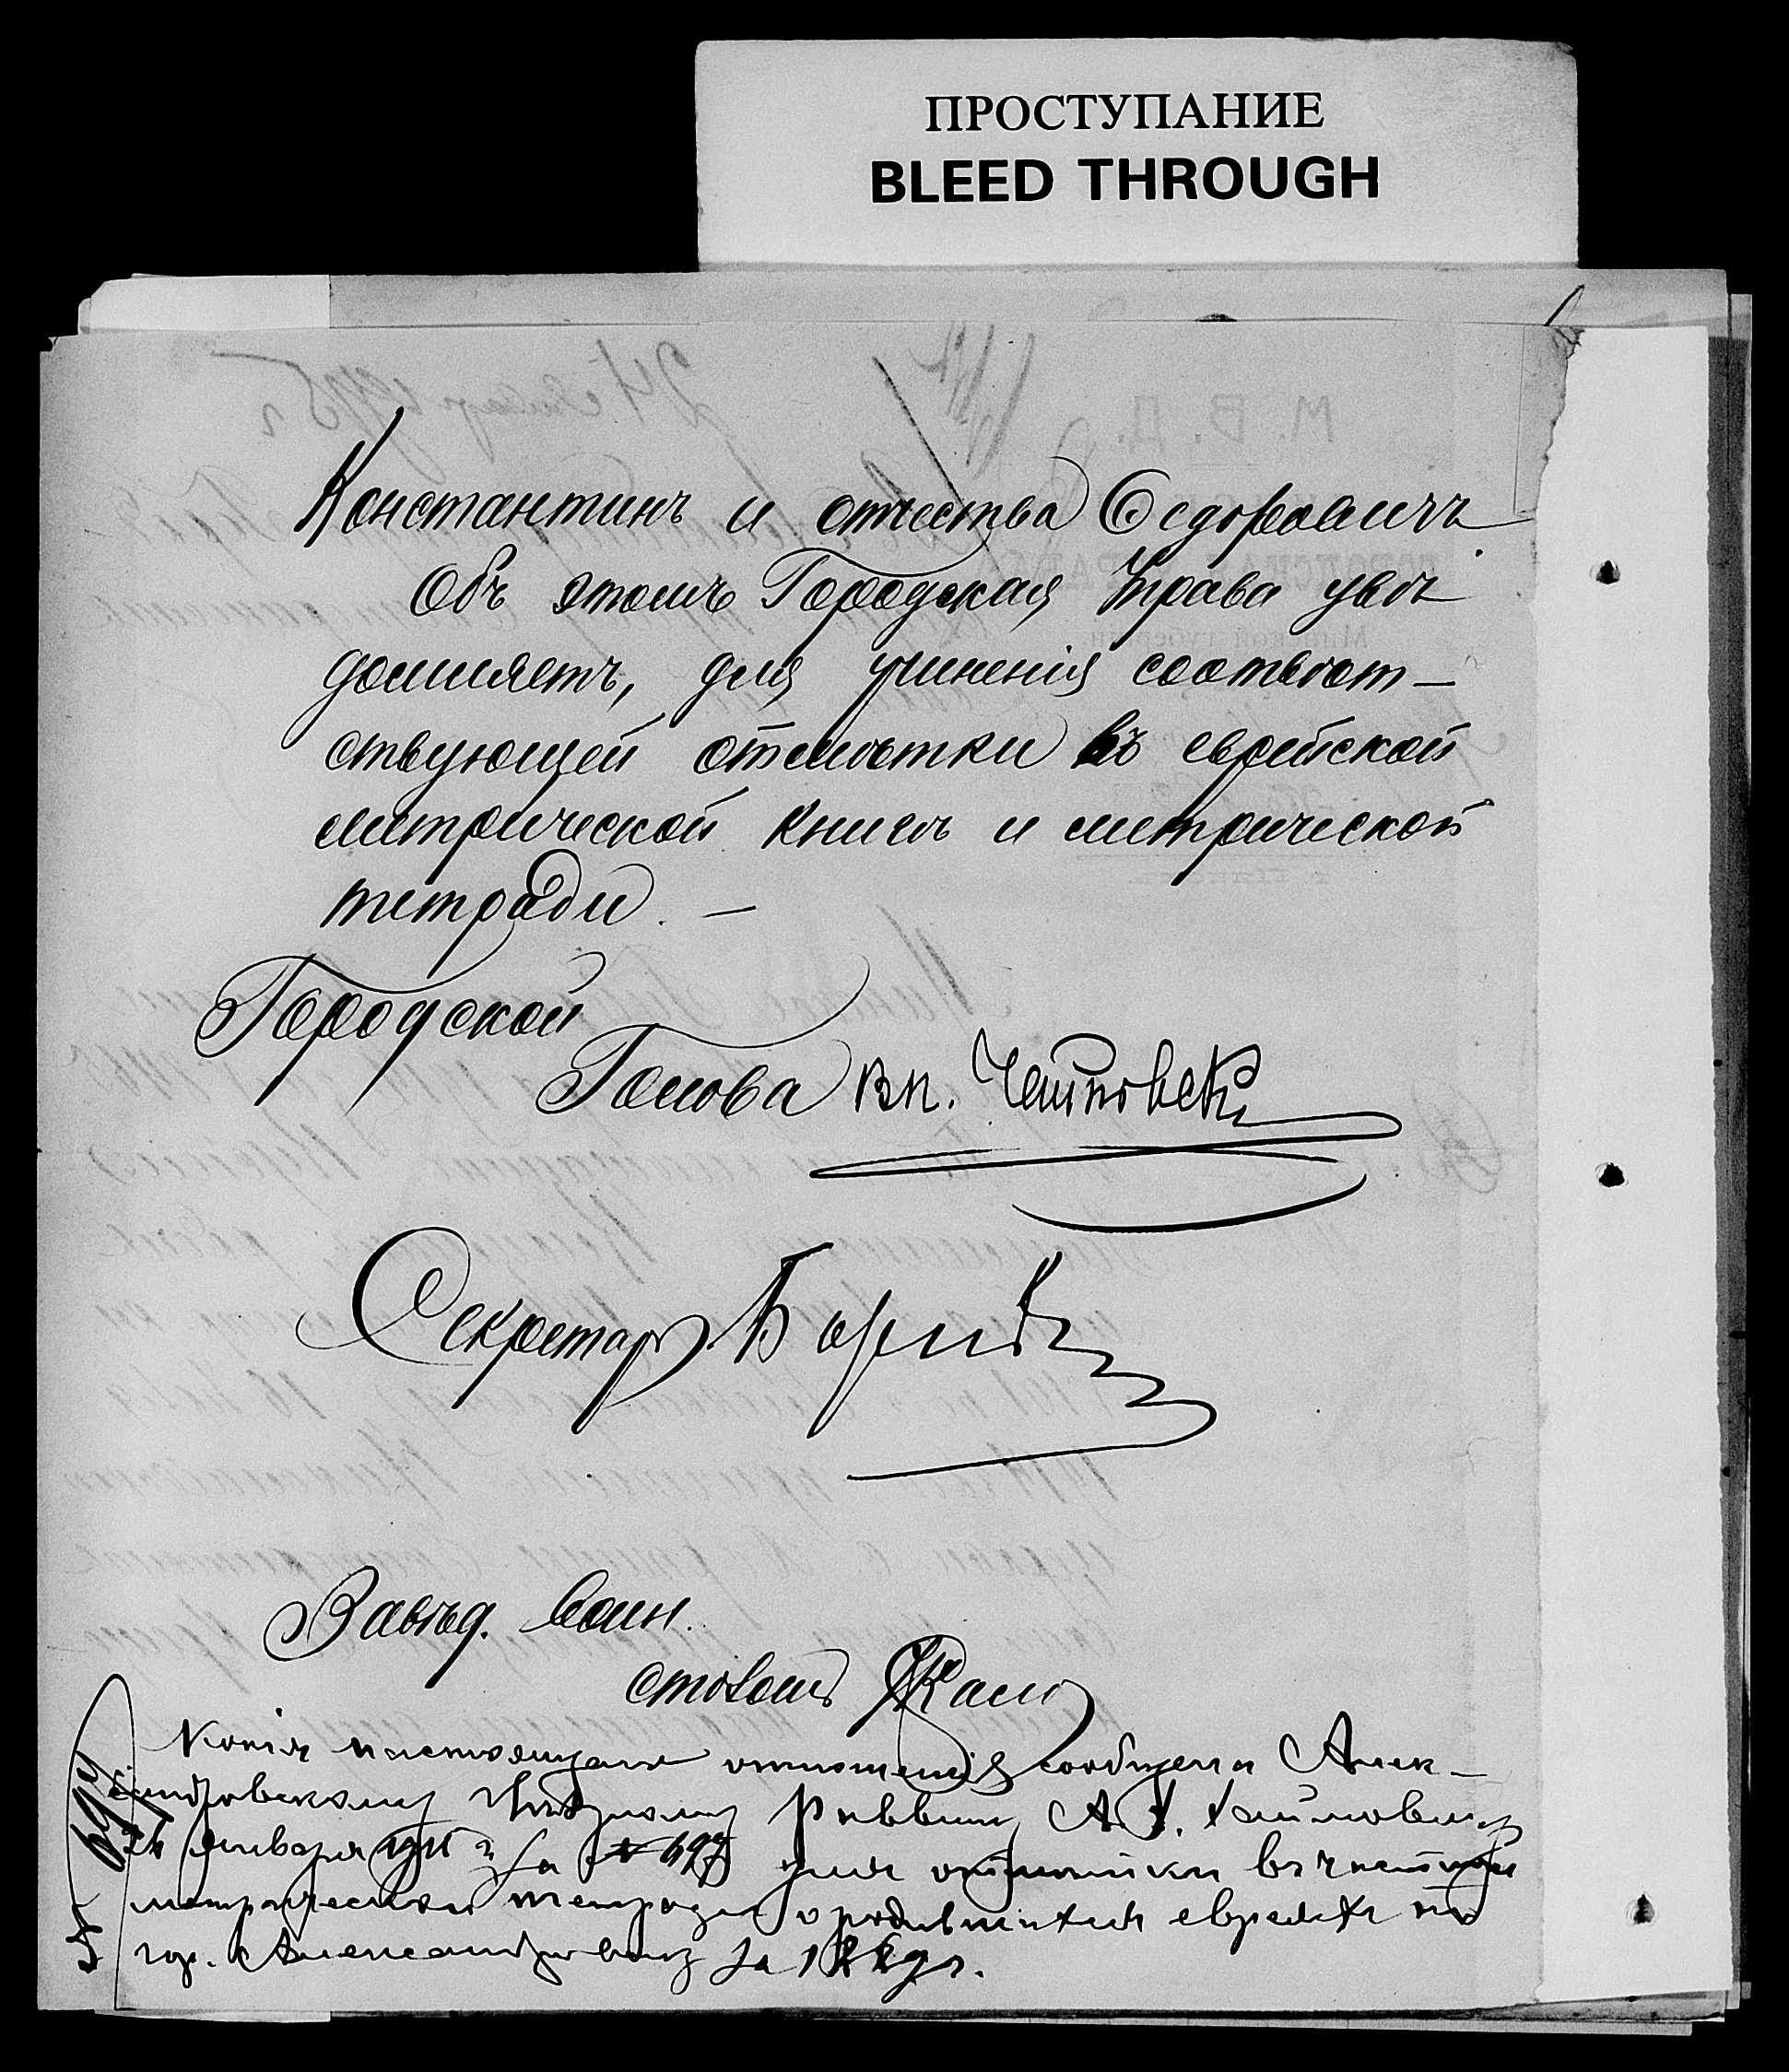 ПРОСТУПАНИЕ
BLEED THROUGH
Константинъ и отчества Ѳедоровичъ.
Объ этомъ Городская Управа увѣ
домляетъ, для учиненія соотвѣт—
ствующей отмѣтки въ еврейской
метрической книгѣ и метрической
тетради. —
Городской
Голова Вл.
Секретарь
Завѣд. Воин.
столомъ
Копія настоящаго отношенія сообщена Алек—
сандровскому Уѣздному Раввину А. Х. Хаймовичу
24 января 1915 г. за № 697 для отмѣтки въ
метрической тетради о родившихся евреяхъ по
гор. Александровску за